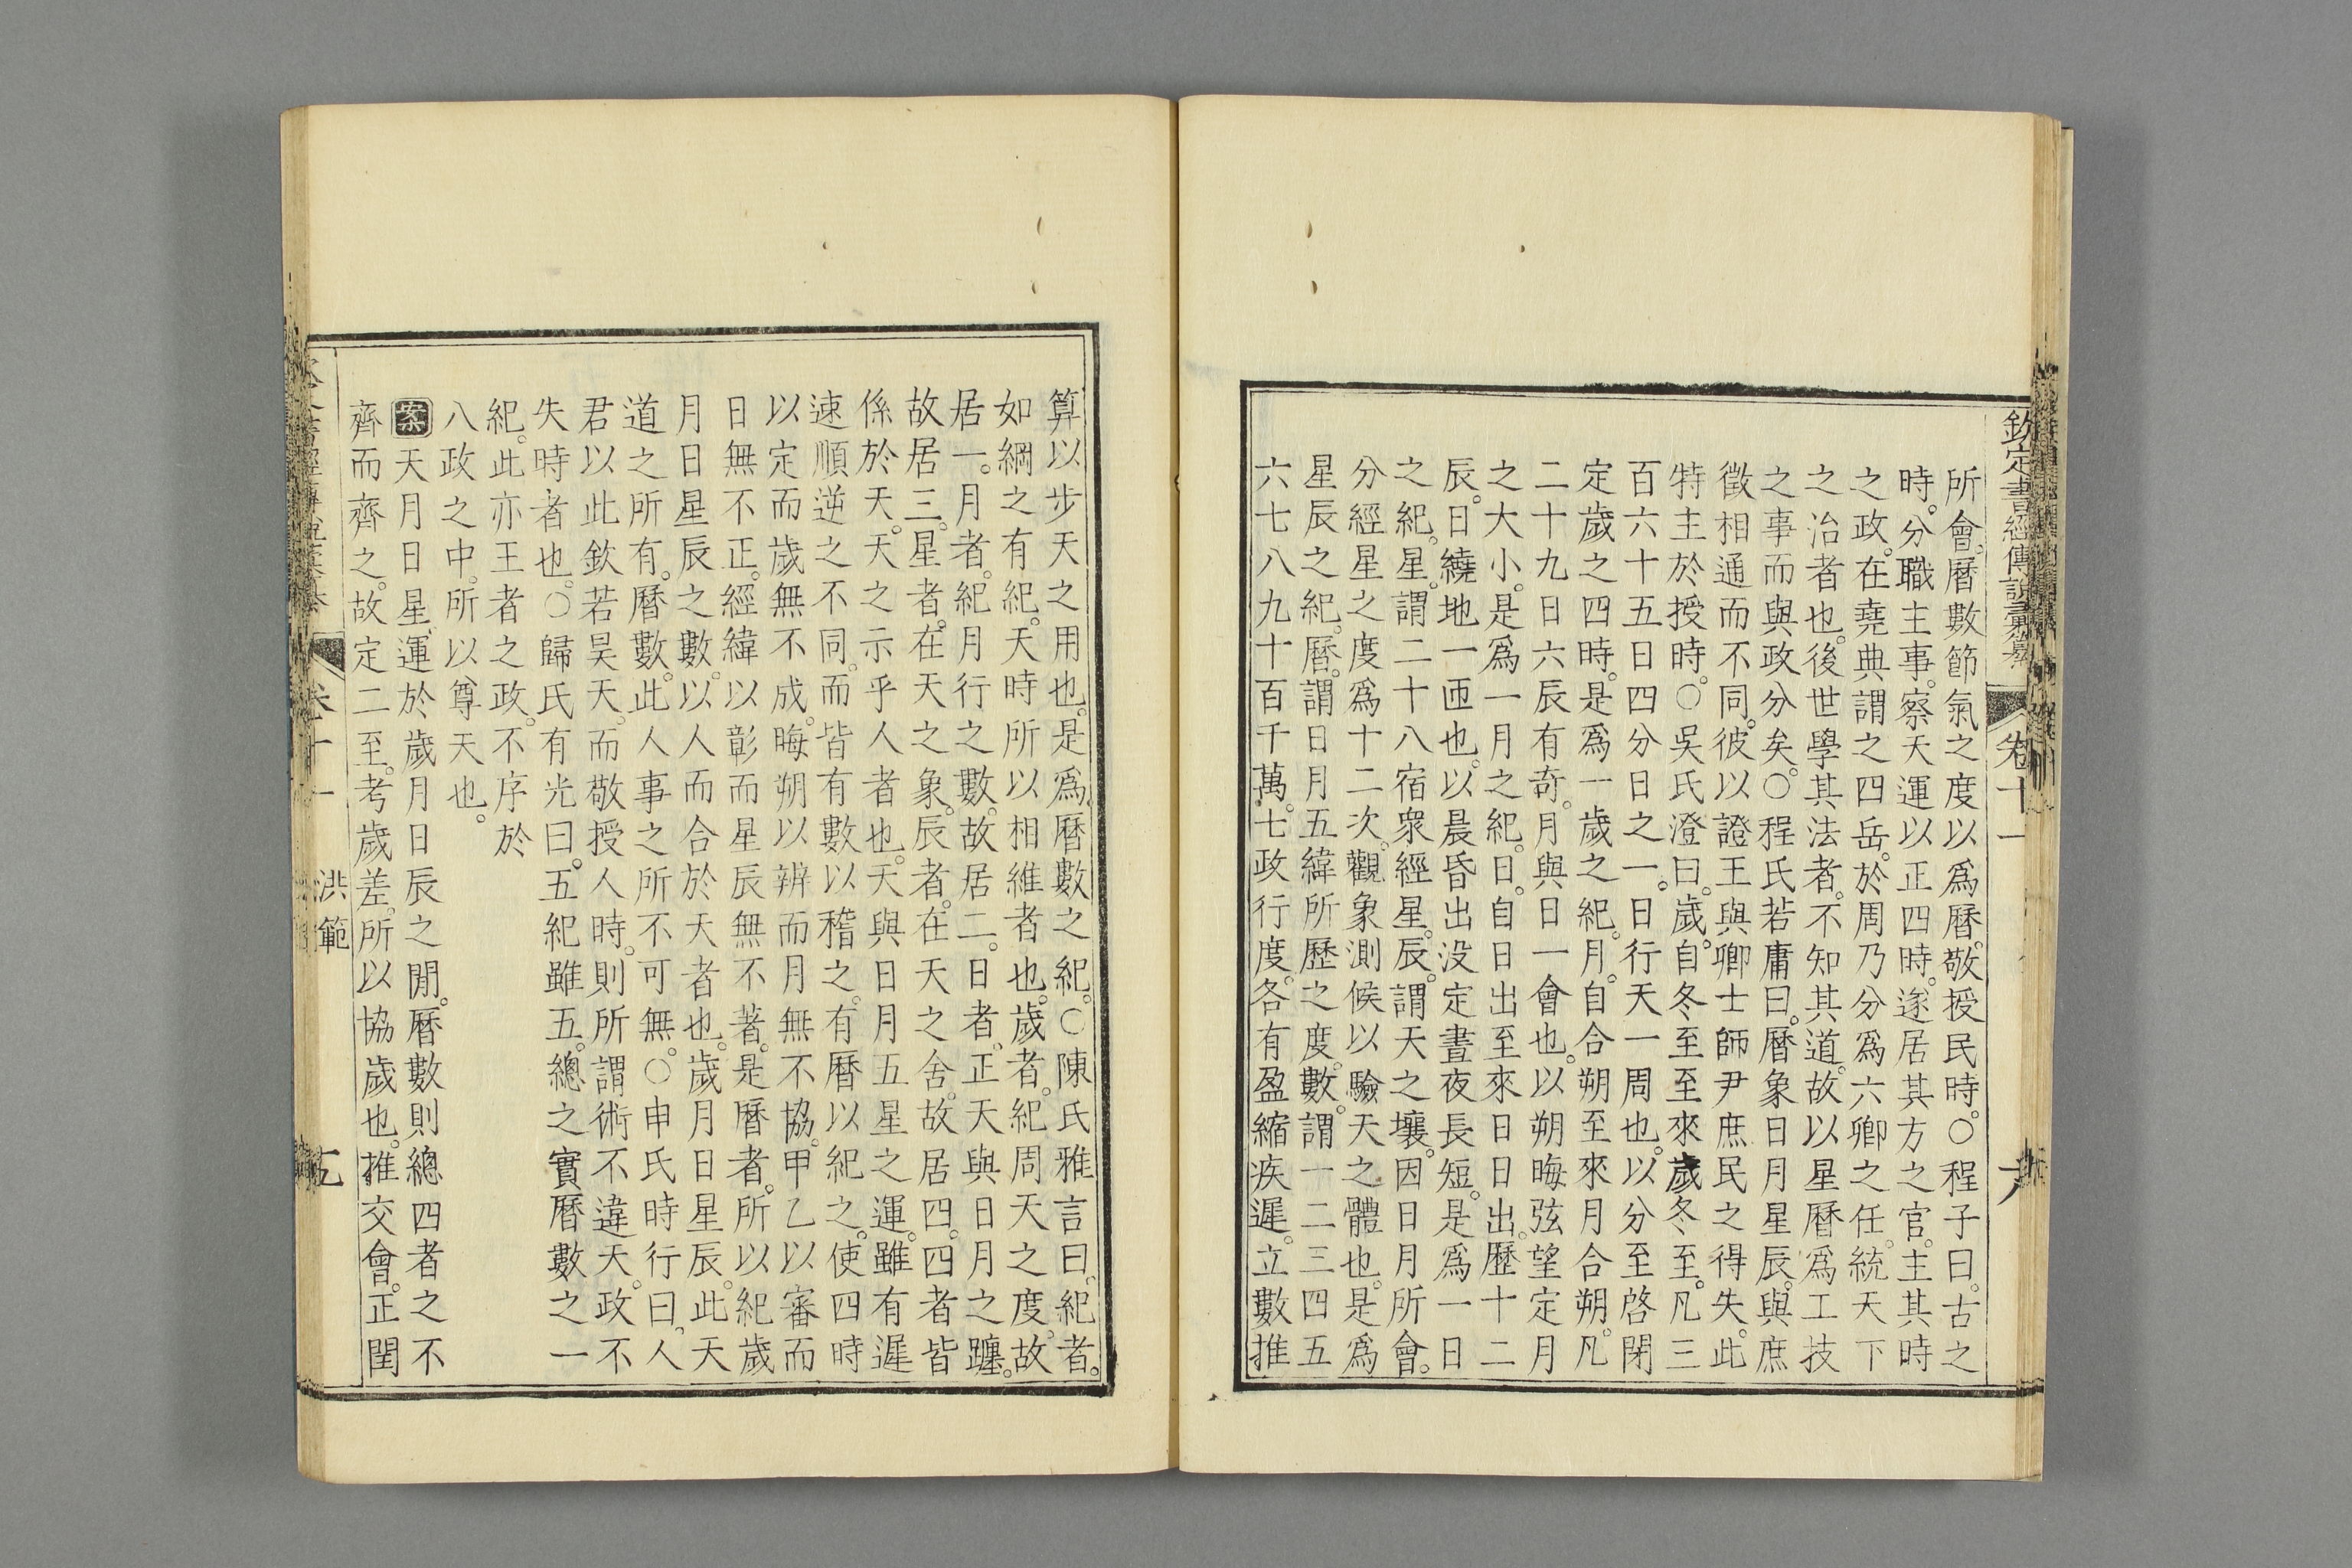 欽定書經傳說彙纂
卷十一
所會曆數節氣之度以爲曆。敬授民時。○程子曰。古之
時。分職主事。察天運以正四時。遂居其方之官。主其時
之政。在堯典謂之四岳。於周乃分爲六卿之任。統天下
之治者也。後世學其法者。不知其道。故以星曆爲工技
之事而與政分矣。○程氏若庸曰。曆象日月星辰。與庶
徵相通而不同。彼以證王與卿士師尹庶民之得失。此
特主於授時。○吳氏澄曰。歲。自冬至至來歲冬至。凡三
百六十五日四分日之一。日行天一周也。以分至啓閉
定歲之四時。是爲一歲之紀。月。自合朔至來月合朔。凡
二十九日六辰有奇。月與日一會也。以朔晦弦望定月
之大小。是爲一月之紀。日。自日出至來日日出。歷十二
辰。日繞地一匝也。以晨昏出没定晝夜長短。是爲一日
之紀。星。謂二十八宿衆經星。辰。謂天之壤。因日月所會。
分經星之度爲十二次。觀象測候以驗天之體也。是爲
星辰之紀。曆。謂日月五緯所歷之度。數。謂一二三四五
六七八九十百千萬。七政行度。各有盈縮疾遲。立數推
算以步天之用也。是爲曆數之紀。○陳氏雅言曰。紀者。
如綱之有紀。天時所以相維者也。歲者。紀周天之度。故
居一。月者。紀月行之數。故居二。日者。正天與日月之躔。
故居三。星者。在天之象。辰者。在天之舍。故居四。四者皆
係於天。天之示乎人者也。天與日月五星之運。雖有遲
速順逆之不同。而皆有數以稽之。有曆以紀之。使四時
以定而歲無不成。晦朔以辨而月無不協。甲乙以審而
日無不正。經緯以彰而星辰無不著。是曆者。所以紀歲
月日星辰之數。以人而合於天者也。歲月日星辰。此天
道之所有。曆數。此人事之所不可無。○申氏時行曰。人
君以此欽若昊天。而敬授人時。則所謂術不違天。政不
失時者也。○歸氏有光曰。五紀雖五。總之實曆數之一
紀。此亦王者之政。不序於
八政之中。所以尊天也。
案天月日星。運於歲月日辰之閒。曆數則總四者之不
齊而齊之。故定二至。考歲差。所以協歲也。推交會。正閏
卷十一 洪範